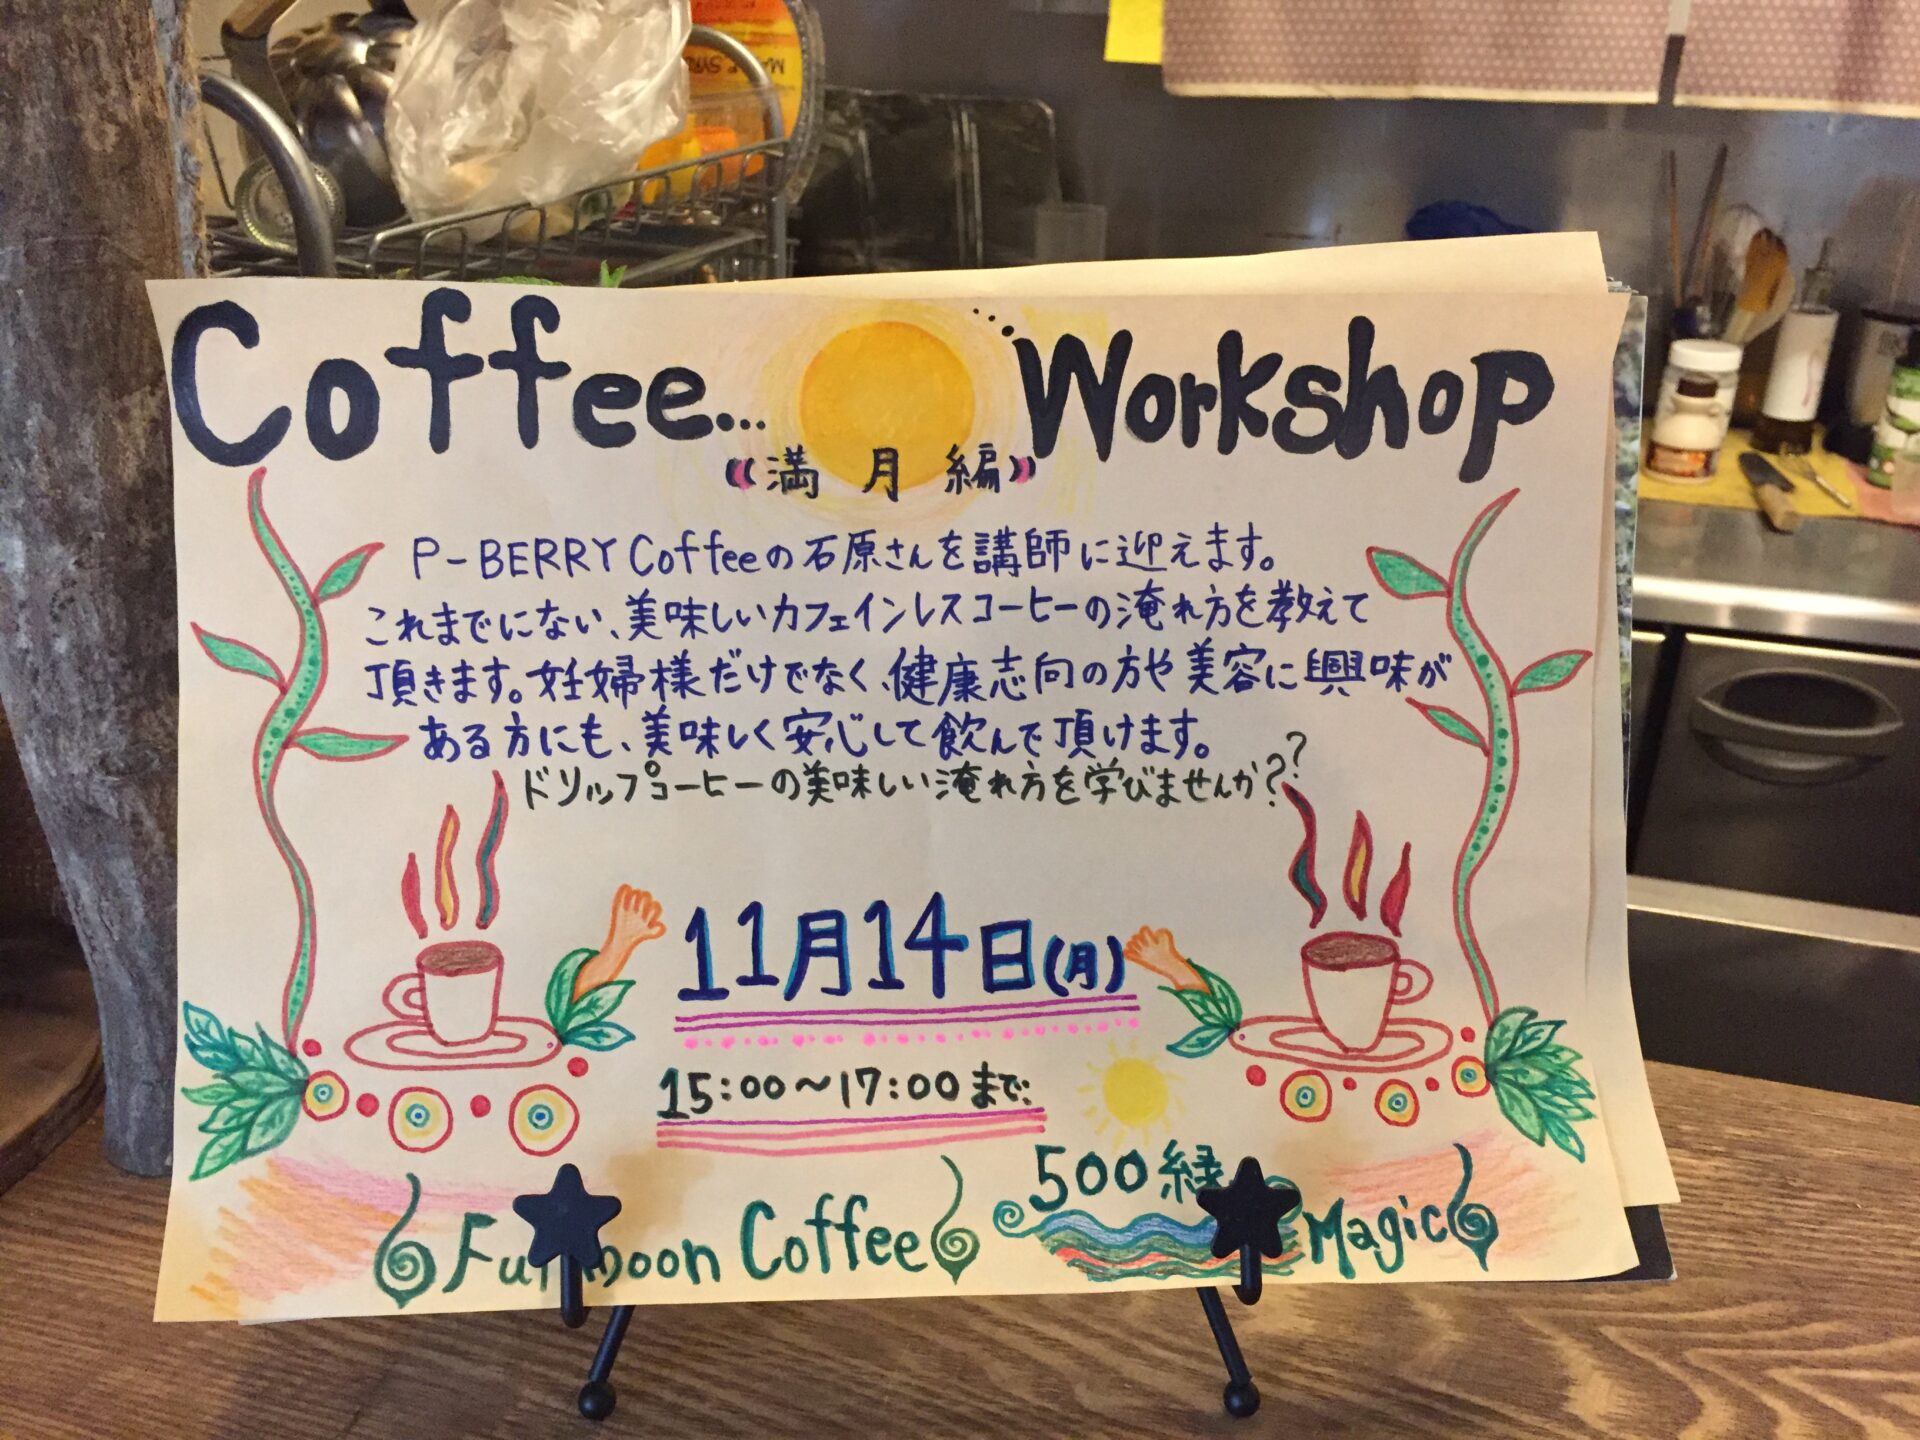 Coffee... Workshop
《満月編》
P-BERRY Coffeeの石原さんを講師に迎えます。
これまでにない、美味しいカフェインレスコーヒーの淹れ方を教えて
頂きます。妊婦様だけでなく、健康志向の方や美容に興味が
ある方にも、美味しく安心して飲んで頂けます。
ドリップコーヒーの美味しい淹れ方を学びませんか??
11月14日(月)
15:00～17:00まで
500縁
Coffee Magic